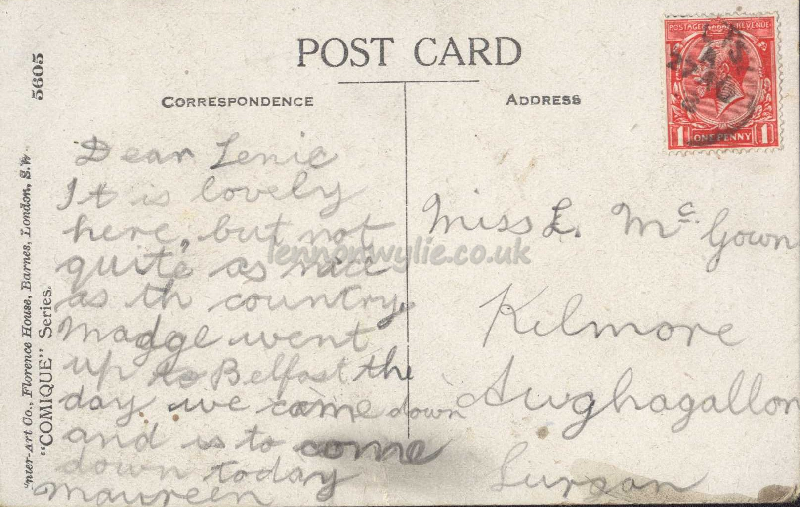 POST CARD
CORRESPONDENCE
ADDRESS
Dear Lenie
It is lovely
here, but not
quite as nice
as th country.
Madge went
up to Belfast the
day we came down
and is to come
down today
Maureen
Miss L. Mc Gown
Kilmore
Aughagallon
Lurgan
5605
"COMIQUE" Series.
Inter-Art Co., Florence House, Barnes, London, S.W
POSTAGE REVENUE
1 ONE PENNY 1
lennonwylie.co.uk